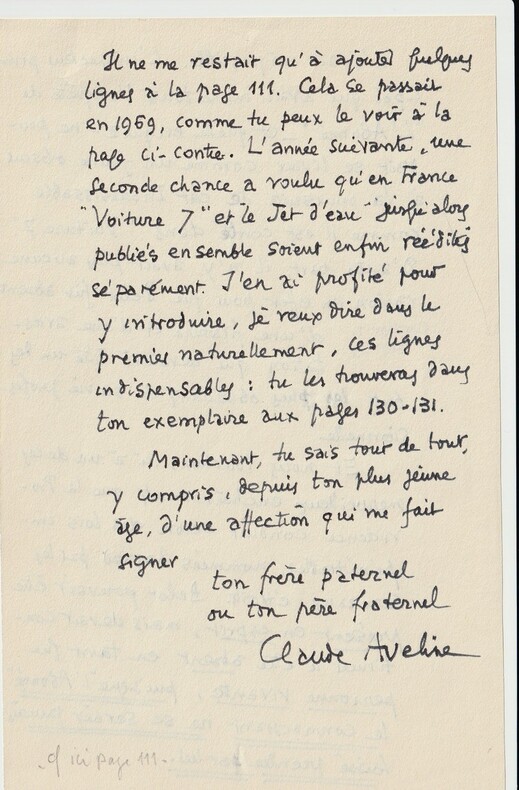 Il ne me restait qu'à ajouter quelques
lignes à la page 111. Cela se passait
en 1969, comme tu peux le voir à la
page ci-contre. L'année suivante, une
seconde chance a voulu qu'en France
"Voiture 7" et le Jet d'eau" jusqu'alors
publiés ensemble soient enfin réédités
séparément. J'en ai profité pour
y introduire, je veux dire dans le
premier naturellement, ces lignes
indispensables : tu les trouveras dans
ton exemplaire aux pages 130-131.
Maintenant, tu sais tout de tout,
y compris, depuis ton plus jeune
âge, d'une affection qui me fait
signer
ton frère paternel
ou ton père fraternel
Claude Aveline
cf ici page 111.